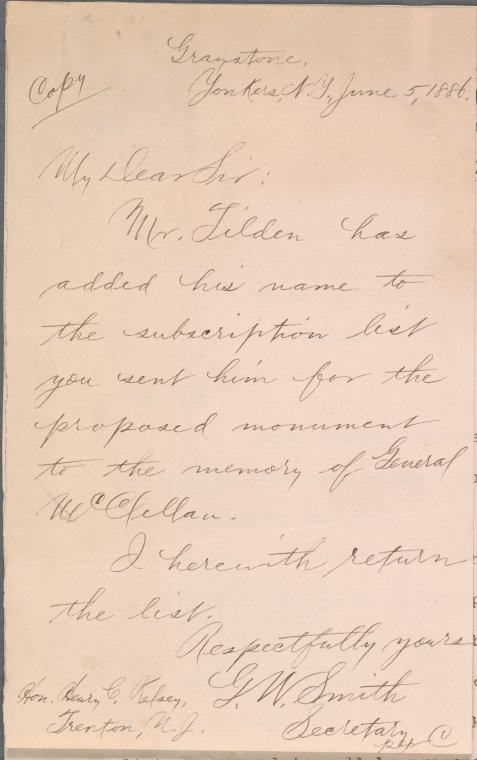 Graystone,
Copy
Yonkers, N.Y., June 5, 1886.
My Dear Sir:
Mr. Tilden has
added his name to
the subscription list
you sent him for the
proposed monument
to the memory of General
McClellan.
I herewith return
the list.
Respectfully yours
G. W. Smith
Secretary
Hon. Henry C. Kelsey,
Trenton, N.J.